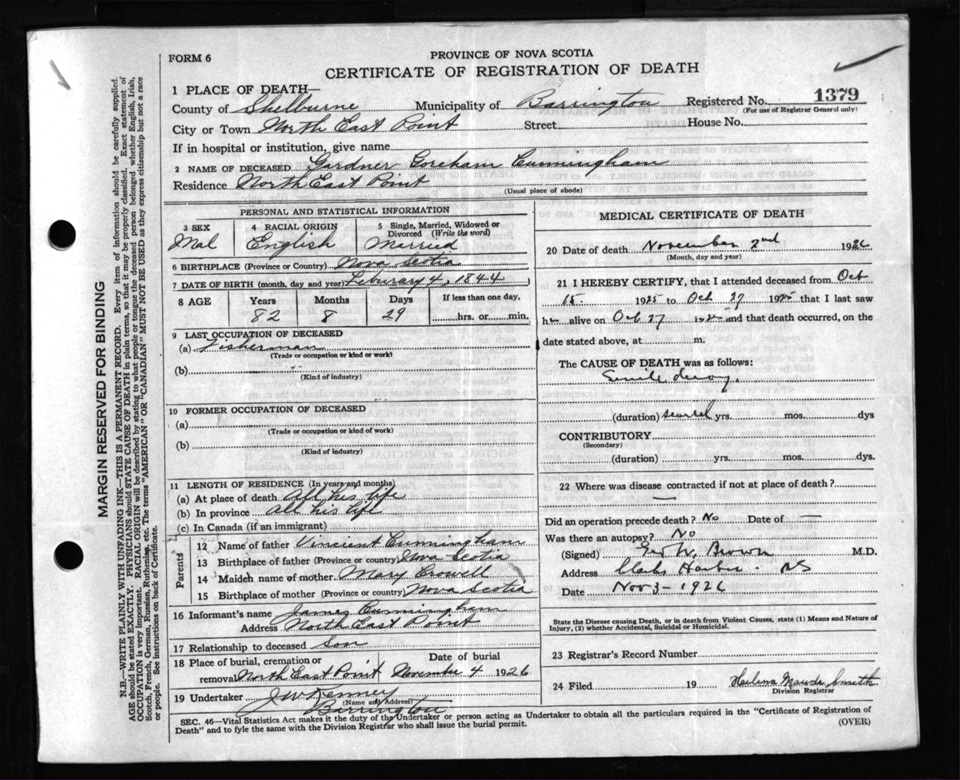 FORM 6
PROVINCE OF NOVA SCOTIA
CERTIFICATE OF REGISTRATION OF DEATH
1 PLACE OF DEATH—
County of Shelburne Municipality of Barrington Registered No. 1379
(For use of Registrar General only)
City or Town North East Point Street House No.
If in hospital or institution, give name
2 NAME OF DECEASED Gardner Goreham Cunningham
Residence North East Point
(Usual place of abode)
PERSONAL AND STATISTICAL INFORMATION
3 SEX 4 RACIAL ORIGIN 5 Single, Married, Widowed or Divorced (Write the word)
Mal English Married
6 BIRTHPLACE (Province or Country) Nova Scotia
7 DATE OF BIRTH (month, day and year) Febuary 4, 1844
8 AGE Years Months Days If less than one day,
82 8 29 hrs. or min.
9 LAST OCCUPATION OF DECEASED
(a) Fisherman
(Trade or occupation or kind or work)
(b)
(Kind of industry)
10 FORMER OCCUPATION OF DECEASED
(a)
(Trade or occupation or kind of work)
(b)
(Kind of industry)
11 LENGTH OF RESIDENCE (In years and months)
(a) At place of death All his life
(b) In province All his life
(c) In Canada (if an immigrant)
Parents
12 Name of father Vincient Cunningham
13 Birthplace of father (Province or country) Nova Scotia
14 Maiden name of mother Mary Crowell
15 Birthplace of mother (Province or country) Nova Scotia
16 Informant's name James Cunningham
Address North East Point
17 Relationship to deceased Son
18 Place of burial, cremation or removal North East Point Date of burial November 4 1926
19 Undertaker J W Kenney
(Name and Address)
Barrington
MEDICAL CERTIFICATE OF DEATH
20 Date of death November 2nd 1926
(Month, day and year)
21 I HEREBY CERTIFY, that I attended deceased from Oct
15 1925 to Oct 27 192 that I last saw
h alive on Oct 27 192 and that death occurred, on the
date stated above, at m.
The CAUSE OF DEATH was as follows:
Senile decay.
(duration) several yrs. mos. dys
CONTRIBUTORY
(Secondary)
(duration) yrs. mos. dys.
22 Where was disease contracted if not at place of death?
—
Did an operation precede death? No Date of —
Was there an autopsy? No
(Signed) Geo W. Brown M.D.
Address Clarks Harbor NS
Date Nov 3 - 1926
State the Disease causing Death, or in death from Violent Causes, state (1) Means and Nature of Injury, (2) whether Accidental, Suicidal or Homicidal.
23 Registrar's Record Number
24 Filed 19 Maude Smith
Division Registrar
SEC. 46—Vital Statistics Act makes it the duty of the Undertaker or person acting as Undertaker to obtain all the particulars required in the "Certificate of Registration of
Death" and to fyle the same with the Division Registrar who shall issue the burial permit. (OVER)
MARGIN RESERVED FOR BINDING
N.B.—WRITE PLAINLY WITH UNFADING INK—THIS IS A PERMANENT RECORD. Every item of information should be carefully supplied.
AGE should be stated EXACTLY. PHYSICIANS should STATE CAUSE OF DEATH in plain terms, so that it may be properly classified. Exact statement of
OCCUPATION is very important. RACIAL ORIGIN will be described by stating to what people or tongue the deceased person belonged whether English, Irish,
Scotch, French, German, Russian, Ruthenian, etc. The terms "AMERICAN" OR "CANADIAN" MUST NOT BE USED as they express citizenship but not a race
or people. See instructions on back of Certificate.